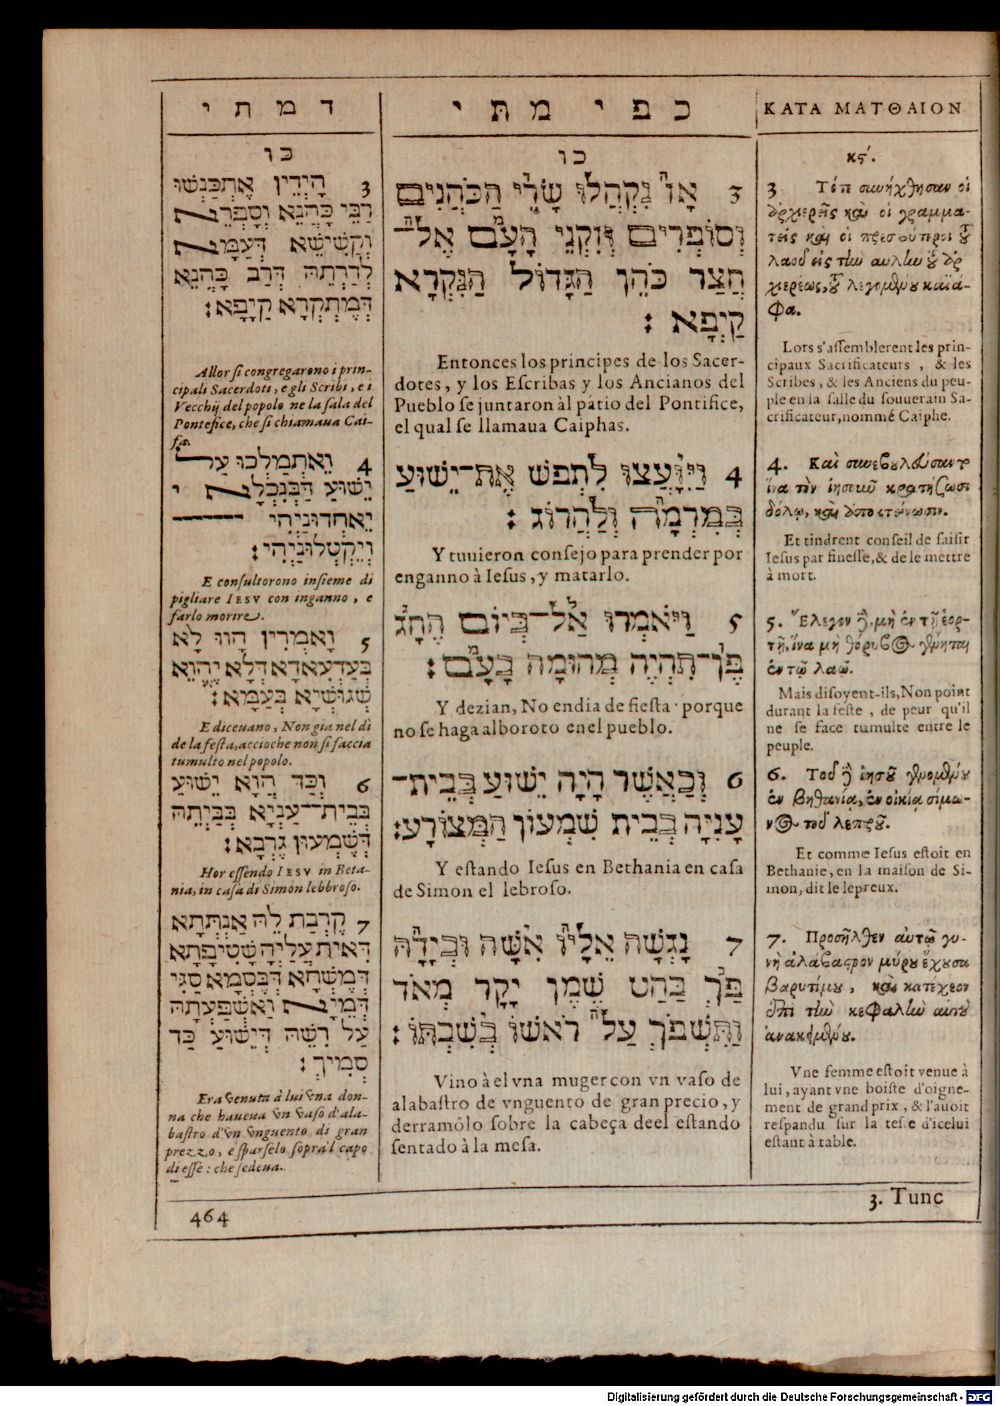 דמתי
כו
3 הָיְדֵין אֶתְכַּנַשׁוּ
רַבֵּי כָּהְנֵא וְסָפְרֵא
וְקַשִׁישֵׁא דְּעַמָּא
לְדָרְתֵהּ דְּרַב כָּהְנֵא
דְּמֶתְקְרֵא קַיָפָא׃
Allor si congregarono i prin-
cipali Sacerdoti, e gli Scribi, e i
Vecchij del popolo ne la sala del
Pontefice, che si chiamaua Cai-
fa.
4 וְאֵתְמַלְכוּ עַל
יֵשׁוּעַ דַּבְנִכְלָא
נֵאחְדוּנָיְהִי
וְנֵיקְטְלוּנָיְהִי׃
E consultorono insieme di
pigliare IESV con inganno, e
farlo morire.
5 וָאמְרִין הֲווֹ לָא
בְּעַדְעִאדָא דְּלָא יֶהֱוֵא
שְׁגוּשְׁיָא בְּעַמָּא׃
E diceuano, Non gia nel di
de la festa, accioche non si faccia
tumulto nel popolo.
6 וְכַד הֲוָא יֵשׁוּעַ
בְּבֵית־עַנְיָא בְּבַיְתֵהּ
דְּשֶׁמְעוּן גַּרְבָא׃
Hor essendo IESV in Beta-
nia, in casa di Simon lebbroso.
7 קֶרְבַת לֵהּ אַנְתְּתָא
דְּאִית עֲלֶיהָ שָׁטִיפְתָא
דְּמֶשְׁחָא דְּבֶסְמָא סַגִּי
דְּמַיָּא וְאַשְׁפַּעְתָהּ
עַל רִישֵׁהּ דְּיֵשׁוּעַ כַּד
סְמִיךְ׃
Era venuta à lui vna don-
na che haueua vn vaso d'ala-
bastro d'vn vnguento di gran
prezzo, e sparselo sopra'l capo
di esse: che sedeua.
464
כפי מתי
כו
3 אָז נִקְהֲלוּ שָׂרֵי הַכֹּהֲנִים
וְסוֹפְרִים וְזִקְנֵי הָעָם אֶל־
חֲצַר כֹּהֵן הַגָּדוֹל הַנִּקְרָא
קַיְפָא׃
Entonces los principes de los Sacer-
dotes, y los Escribas y los Ancianos del
Pueblo se juntaron àl patio del Pontifice,
el qual se llamaua Caiphas.
4 וַיִּוָּעֲצוּ לִתְפֹּשׂ אֶת־יֵשׁוּעַ
בְּמִרְמָה וְלַהֲרוֹג׃
Y tuuieron consejo para prender por
enganno à Iesus, y matarlo.
5 וַיֹּאמְרוּ אַל־בְּיוֹם הֶחָג
פֶּן־תִּהְיֶה מְהוּמָה בָּעָם׃
Y dezian, No en dia de fiesta· porque
no se haga alboroto en el pueblo.
6 וְכַאֲשֶׁר הָיָה יֵשׁוּעַ בְּבֵית־
עָנִיָּה בְּבֵית שִׁמְעוֹן הַמְּצוֹרָע׃
Y estando Iesus en Bethania en casa
de Simon el lebroso.
7 נָגְשָׁה אֵלָיו אִשָּׁה וּבְיָדָהּ
פַּךְ בַּהַט שֶׁמֶן יָקָר מְאֹד
וַתִּשְׁפֹּךְ עַל רֹאשׁוֹ בְּשִׁבְתּוֹ׃
Vino à el vna muger con vn vaso de
alabastro de vnguento de gran precio, y
derramôlo sobre la cabeça deel estando
sentado à la mesa.
ΚΑΤΑ ΜΑΤΘΑΙΟΝ
κϛʹ.
3 Τότε συνήχθησαν οἱ
ἀρχιερεῖς καὶ οἱ γραμμα-
τεῖς καὶ οἱ πρεσβύτεροι τοῦ
λαοῦ εἰς τὴν αὐλὴν τοῦ ἀρ-
χιερέως, τοῦ λεγομένου καϊά-
φα.
Lors s'assemblerent les prin-
cipaux Sacrificateurs, & les
Scribes, & les Anciens du peu-
ple en la salle du souuerain Sa-
crificateur, nommé Caiphe.
4. Καὶ συνεβουλεύσαντο
ἵνα τὸν ἰησοῦν κρατήσωσι
δόλῳ, καὶ ἀποκτείνωσιν.
Et tindrent conseil de saisir
Iesus par finesse, & de le mettre
à mort.
5. Ἔλεγον δὲ, μὴ ἐν τῇ ἑορ-
τῇ, ἵνα μὴ θόρυβος γένηται
ἐν τῷ λαῷ.
Mais disoyent-ils, Non point
durant la feste, de peur qu'il
ne se face tumulte entre le
peuple.
6. Τοῦ δὲ ἰησοῦ γενομένου
ἐν βηθανίᾳ, ἐν οἰκίᾳ σίμω-
νος τοῦ λεπροῦ.
Et comme Iesus estoit en
Bethanie, en la maison de Si-
mon, dit le lepreux.
7. Προσῆλθεν αὐτῷ γυ-
νὴ ἀλάβαστρον μύρου ἔχουσα
βαρυτίμου, καὶ κατέχεεν
ἐπὶ τὴν κεφαλὴν αὐτοῦ
ἀνακειμένου.
Vne femme estoit venue à
lui, ayant vne boiste d'oigne-
ment de grand prix, & l'auoit
respandu sur la teste d'icelui
estant à table.
3. Tunc
Digitalisierung gefördert durch die Deutsche Forschungsgemeinschaft - DFG